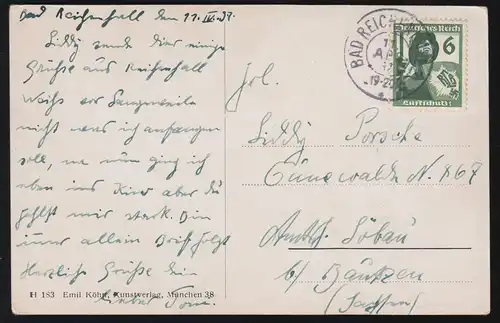 Bad Reichenhall den 11.IV.37.
Liddy sende dir einige
Grüsse aus Reichenhall
Weiss vor Langeweile
nicht was ich anfangen
soll, ging ich
eben ins Kino aber du
fehlst mir stark. Bin
immer allein Brief folgt
Herzliche Grüße Dein
H 183 Emil Köhn, Kunstverlag, München 38
BAD REICH
AP
19-2
Deutsches Reich
6
Luftschutz
Frl.
Liddy Porsche
Cunewalde N. 867
Amtsh. Löbau
b/ Bautzen
(Sachsen)